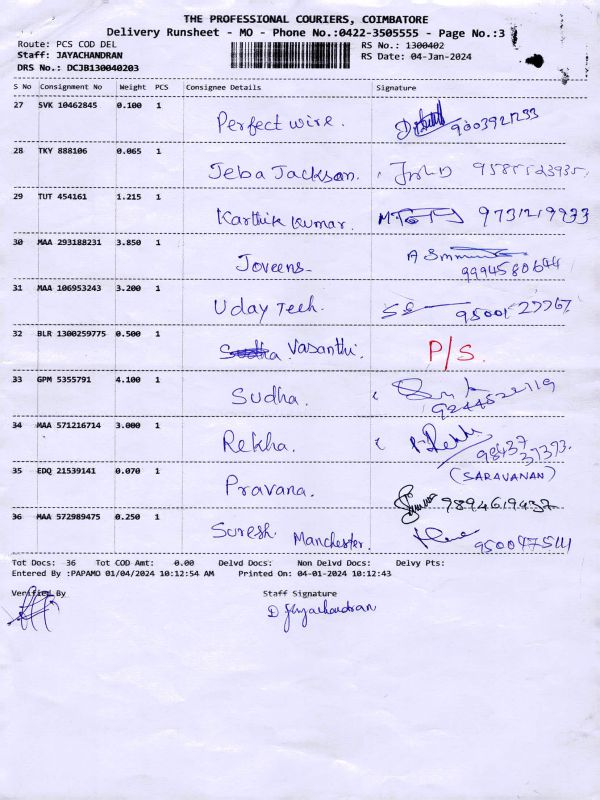 THE PROFESSIONAL COURIERS, COIMBATORE
Delivery Runsheet - MO - Phone No.:0422-3505555 - Page No.:3
Route: PCS COD DEL RS No.: 1300402
Staff: JAYACHANDRAN RS Date: 04-Jan-2024
DRS No.: DCJB130040203
S No Consignment No Weight PCS Consignee Details Signature
27 SVK 10462845 0.100 1 Perfect wire. 9003921233
28 TKY 888106 0.065 1 Jeba Jackson. 9585523935
29 TUT 454161 1.215 1 Karthik Kumar. 9731219933
30 MAA 293188231 3.850 1 Joveens 9994580644
31 MAA 106953243 3.200 1 Uday Tech.
32 BLR 1300259775 0.500 1 Vasanthi. P/S.
33 GPM 5355791 4.100 1 Sudha. 9244522119
34 MAA 571216714 3.000 1 Rekha. 98437 37373.
35 EDQ 21539141 0.070 1 Pravana. (SARAVANAN) 9894619437
36 MAA 572989475 0.250 1 Suresh Manchester.
Tot Docs: 36 Tot COD Amt: 0.00 Delvd Docs: Non Delvd Docs: Delvy Pts:
Entered By :PAPAMO 01/04/2024 10:12:54 AM Printed On: 04-01-2024 10:12:43
Verified By Staff Signature
D Jeyachandran